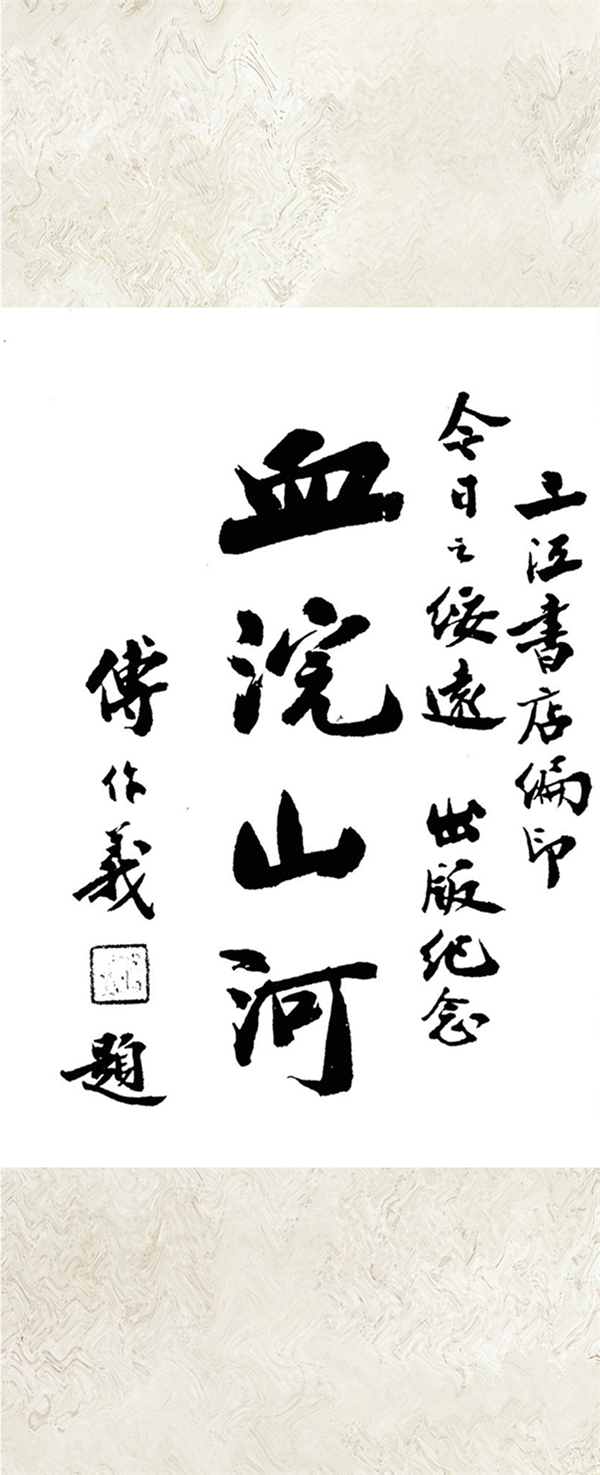 三江書店編印
今日之綏遠 出版紀念
血浣山河
傅作義 題